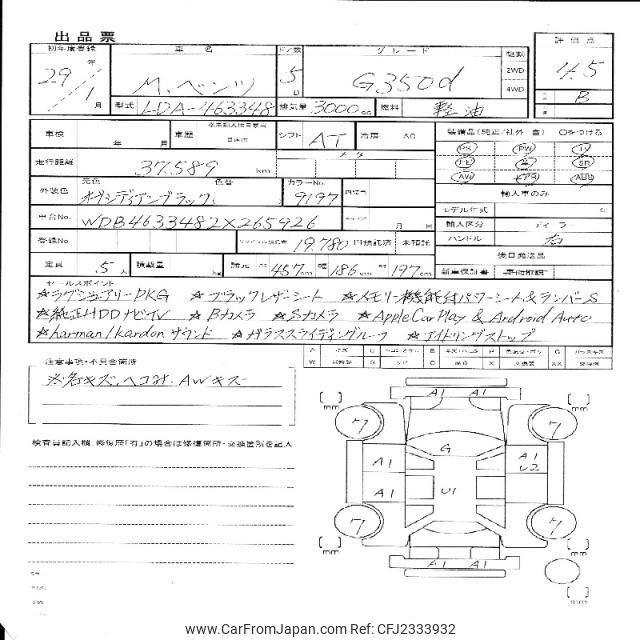 出品票
初年度登録 車名 ドア数 グレード 駆動 評価点
29年 M.ベンツ 5 G350d 2WD 4WD 4.5
1月 型式 LDA-463348 排気量 3000cc 燃料 軽油 B
車検 年 月 車歴 シフト AT 冷房 AC 装備品(純正/社外 含) Oをつける
走行距離 37.589 km メータ PS PW
AW 輸入車のみ
外装色 元色 オブシディアンブラック 色替 カラーNo. 9197 内装色
モデル年式
車台No. WDB4633482X265926 月 日 輸入区分 ディラ
登録No. リサイクル預託金 19.780 円預託済 未預託 ハンドル 右
後日発送品
定員 5人 積載量 kg 諸元 長さ 457cm 幅 186cm 高さ 197cm 新車保証書 取扱説明書
セールスポイント
☆ラグジュアリーPKG ☆ブラックレザーシート ☆メモリー機能付パワーシート&ランバーS
☆純正HDDナビTV ☆Bカメラ ☆Sカメラ ☆Apple Car Play & Android Auto
☆harman/kardonサウンド ☆ガラススライディングルーフ ☆アイドリングストップ
注意事項・不具合箇所
※名キズ、ヘコミ、AWキズ
検査員記入欄、修復歴「有」の場合は修復箇所・交換箇所を記入
[ ] mm A1 A1 [ ] mm
7 7
G
A1 A1 U2
A1 U1
7 7
[ ] mm A1 A1 [ ] mm
A1 A1
[ ] mm
www.CarFromJapan.com Photo ID: CFJ2333932